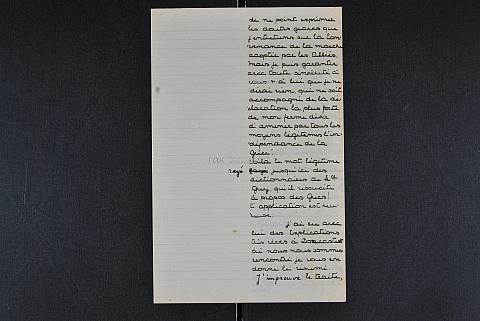 de ne point exprimer
les doutes graves que
j'entretiens sur la con
venance de la marche
adoptée par les Alliés,
mais je puis garantir
avec toute sincérité à
vous & à lui que je ne
dirai rien, qui ne soit
accompagné de la dé
claration la plus forte
de mon ferme désir
d'amener par tous les
moyens légitimes l'in
dépendance de la
Grèce!
Voilà le mot légitime
rayé jusqu'ici des
dictionnaires de Ld
Grey, qu'il ressuscite
à propos des Grecs!
l'application est cu
rieuse.
J'ai eu avec
lui des explications
très vives à Doncaster
où nous nous sommes
rencontré je vous en
donne le résumé.
J'improuve le traité,